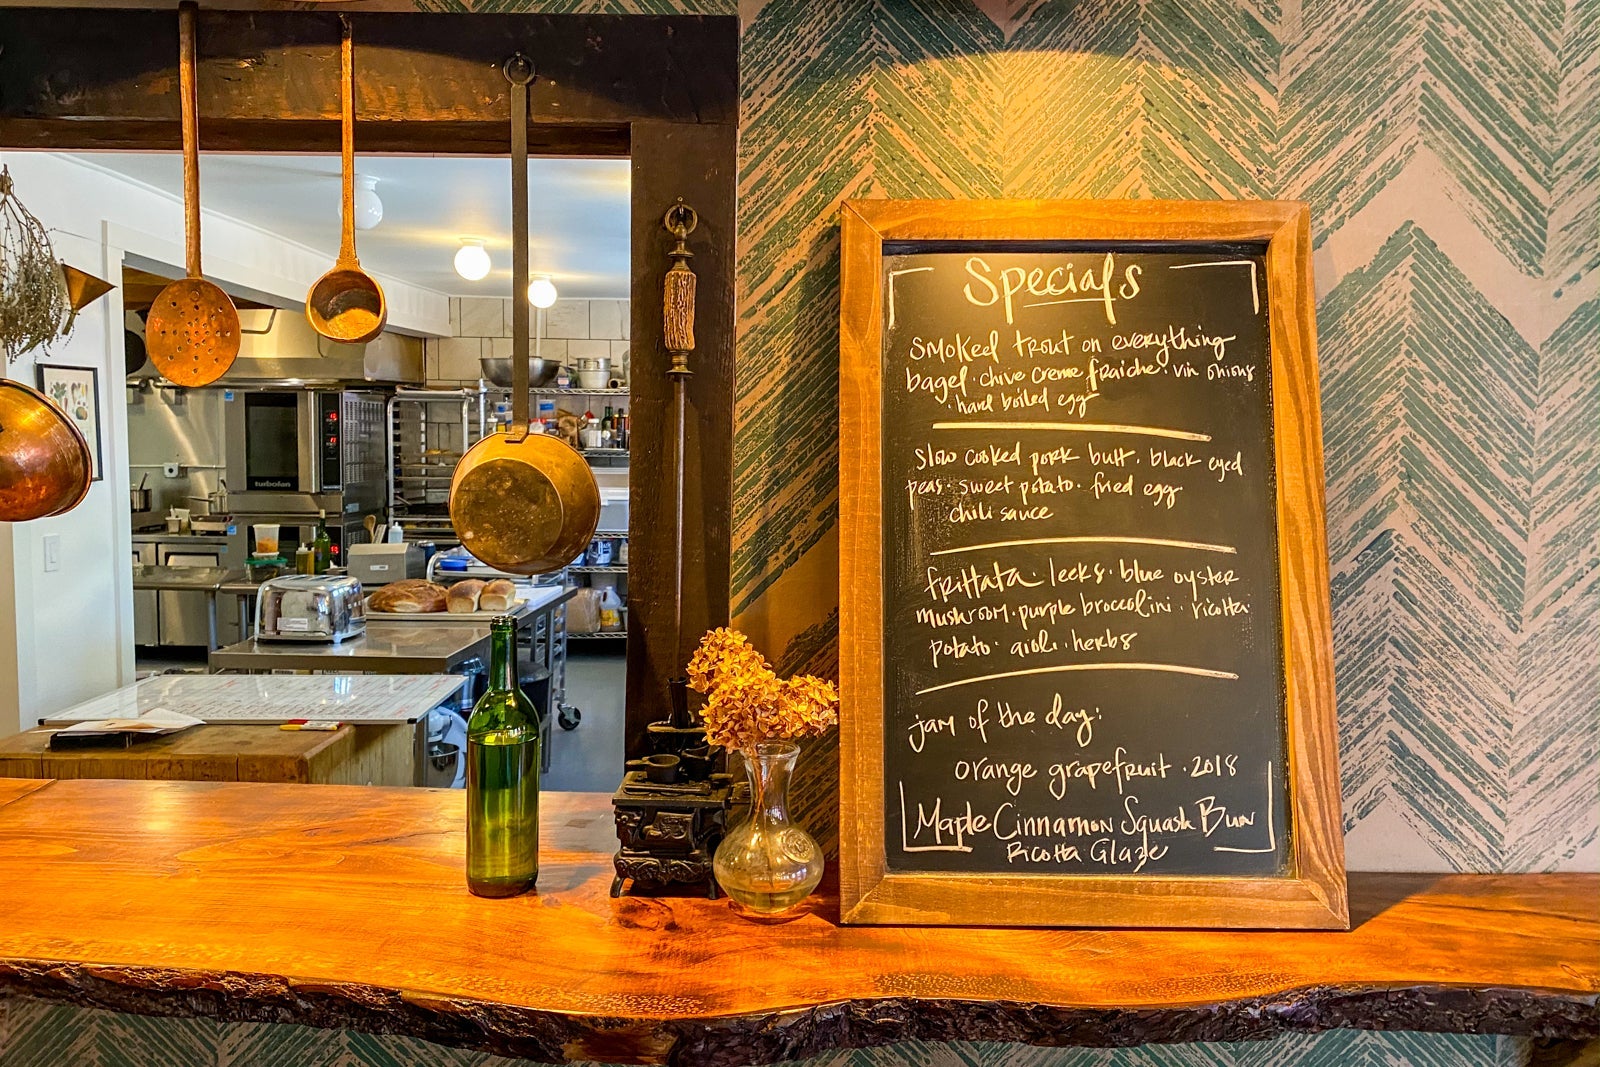 turbofan
Specials
Smoked trout on everything
bagel · chive creme fraiche · vin onions
· hard boiled egg
slow cooked pork butt · black eyed
peas · sweet potato · fried egg ·
chili sauce
frittata · leeks · blue oyster
mushroom · purple broccolini · ricotta
potato · aioli · herbs
jam of the day:
orange grapefruit · 2018
Maple Cinnamon Squash Bun
Ricotta Glaze